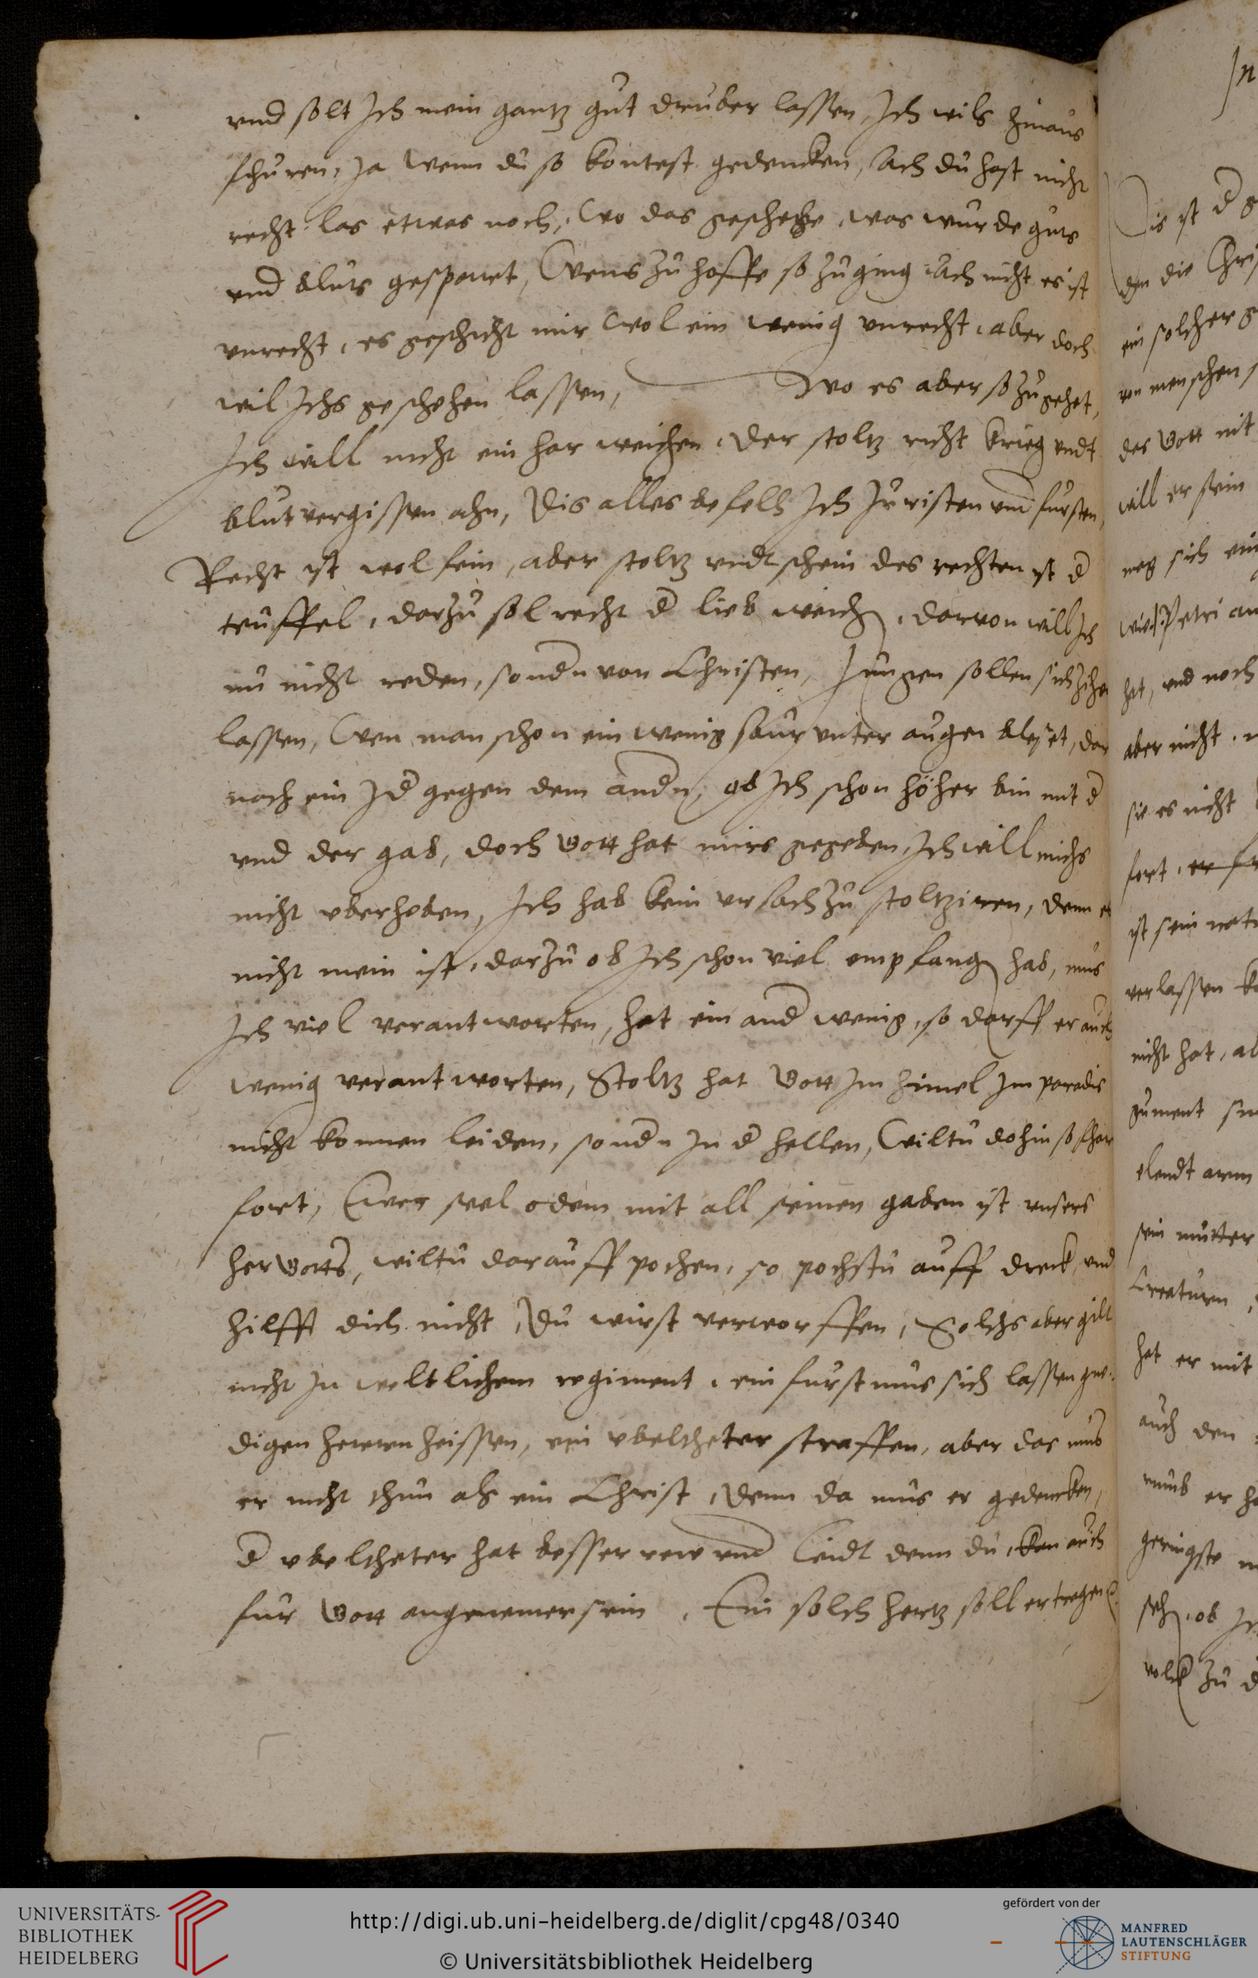 vnd solt Ich mein gantz gut druber lassen, Ich wils hinaus
fhuren, Ja wenn du so kontest gedencken, Ach du hast nicht
recht las etwas noch, Wo das geschehe, was wurde guts
vnd bluts gesparet, Wens zu hoffe so zuging, Ach nicht es ist
vnrecht, es geschicht mir wol ein wenig vnrecht, aber doch
wil Ichs geschehen lassen, Wo es aber so zu gehet,
Ich will nicht ein har weichen, der stoltz richt krieg vndt
blutvergissen ahn, Dis alles befelh Ich Juristen vnd fursten,
Recht ist wol fein, aber stoltz vndt schein des rechten ist d
teuffel, darzu sol recht d lieb weichen, darvon will Ich
nu nicht reden, sondn von Christen, Jungen sollen sich zihen
lassen, Wen man schon ein wenig saur vnter augen bleset, dar
noch ein Jd gegen dem andn, ob Ich schon höher bin mit d
vnd der gab, doch Gott hat mirs gegeben, Ich will michs
nicht vberheben, Ich hab kein vrsach zu stoltziren, denn es
nicht mein ist, darzu ob Ich schon viel empfangen hab, mus
Ich viel verantworten, hat ein and wenig, so darff er auch
wenig verantworten, Stoltz hat Gott Im himel Im paradis
nicht konnen leiden, sondn In d hellen, Wiltu dohin so fhar
fort, Ewer seel odem mit all seinen gaben ist vnsers
her Gotts, wiltu darauff pochen, so pochstu auff dreck, vnd
hilfft dich nicht, Du wirst verworffen, Solchs aber gilt
nicht In weltlichem regiment, ein furst mus sich lassen gne-
digen herren heissen, ein vbeltheter straffen, aber das mus
er nicht thun als ein Christ, Denn da mus er gedencken,
d vbeltheter hat besser rew vnd leidt denn du, kan auch
fur Gott angenemer sein, Ein solch hertz soll er tragen
In
Dis ist d
den die Chris
ein solcher
von menschen
das Gott mit
will er sein
mag sich ein
wie S. Petri an
hat, vnd noch
aber nicht,
sie es nicht
fort,
ist sein
verlassen
nicht hat,
gument
elendt arm
sein mutter
Creaturn,
hat er mit
auch den
mus er
geringste
ob Ich
volck zu
UNIVERSITÄTS-
BIBLIOTHEK
HEIDELBERG
http://digi.ub.uni-heidelberg.de/diglit/cpg48/0340
© Universitätsbibliothek Heidelberg
gefördert von der
MANFRED
LAUTENSCHLÄGER
STIFTUNG